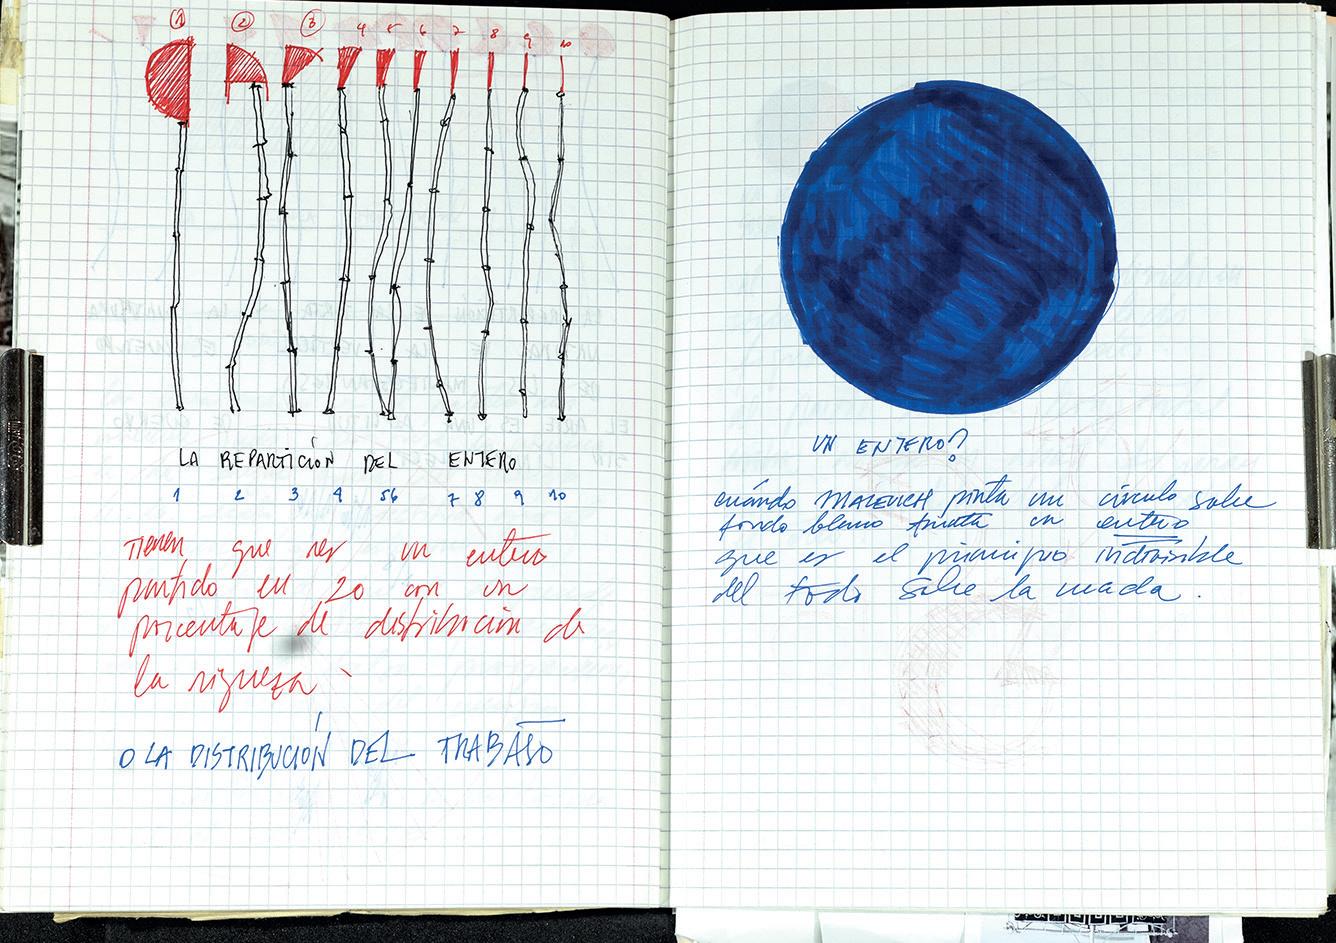 1 2 3 4 5 6 7 8 9 10
LA REPARTICIÓN DEL ENTERO
1 2 3 4 5 6 7 8 9 10
Tienen que ser un entero
partido en 20 con un
porcentaje de distribución de
la riqueza
O LA DISTRIBUCIÓN DEL TRABAJO
UN ENTERO?
cuándo MALEVICH pinta un círculo sobre
fondo blanco un entero
que es el principio indivisible
del todo sobre la nada.